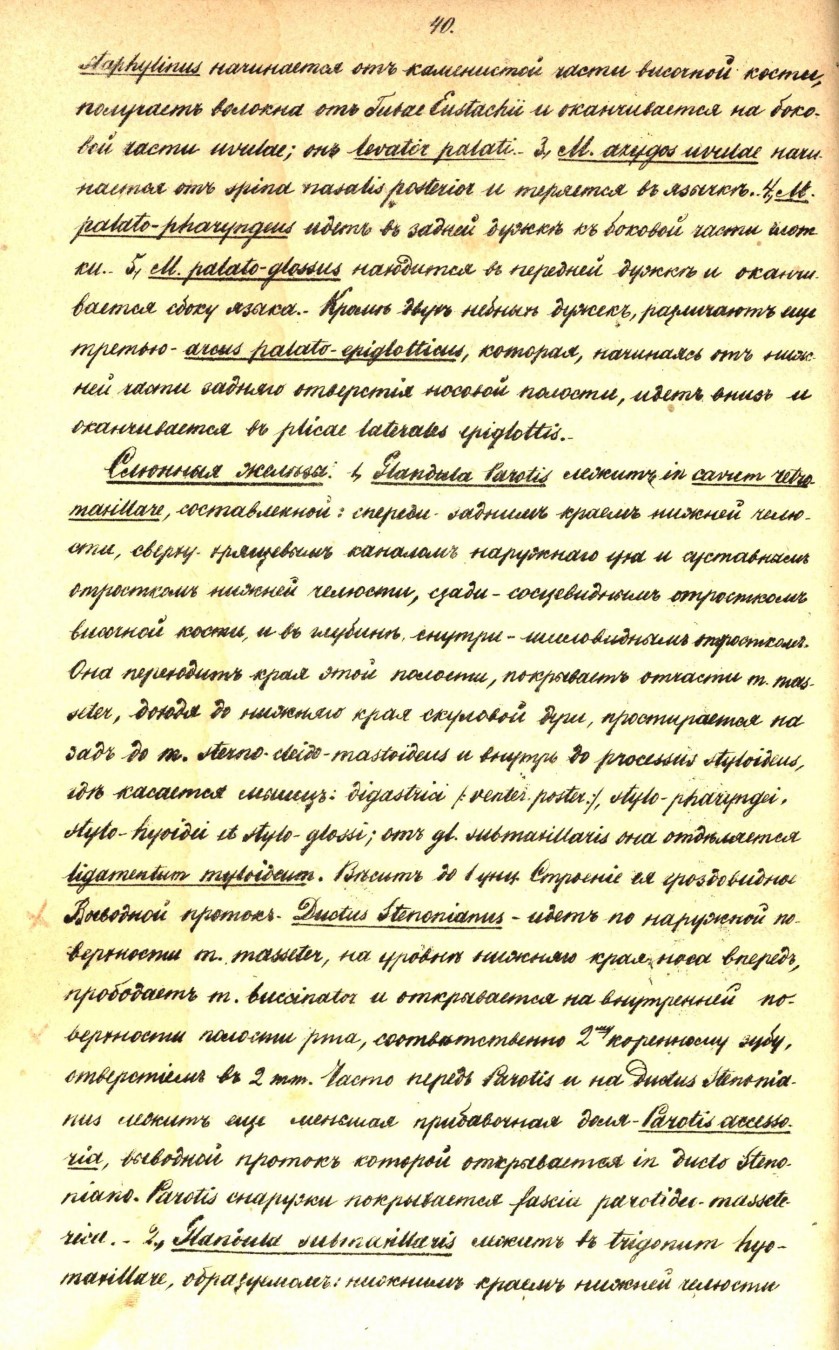 40.
staphylinus начинается отъ каменистой части височной кости,
получаетъ волокна отъ Tubae Eustachii и оканчивается на боко-
вой части uvulae; онъ levator palati.- 3, M. azygos uvulae начи-
нается отъ spina nasalis posterior и теряется въ язычкѣ.- 4, M.
palato-pharyngeus идетъ въ задней дужкѣ къ боковой части глот
ки.- 5, M. palato-glossus находится въ передней дужкѣ и оканчи-
вается сбоку языка.- Кромѣ двухъ небныхъ дужекъ, различаютъ еще
третью- arcus palato-epiglotticus, которая, начинаясь отъ ниж-
ней части задняго отверстія носовой полости, идетъ внизъ и
оканчивается въ plicae laterales epiglottis.-
Слюнныя железы: 1, Glandula Parotis лежитъ in cavum retro
maxillare, составленной: спереди- заднимъ краемъ нижней челю-
сти, сверху- хрящевымъ каналомъ наружнаго уха и суставнымъ
отросткомъ нижней челюсти, сзади- сосцевиднымъ отросткомъ
височной кости, и въ глубинѣ, снутри- шиловиднымъ отросткомъ.
Она переходитъ края этой полости, покрываетъ отчасти m. mas-
seter, доходя до нижняго края скуловой дуги, простирается на
задъ до m. sterno-cleido-mastoideus и внутрь до processus styloideus,
гдѣ касается мышцъ: digastrici /: venter poster:/, stylo-pharyngei,
stylo-hyoidei et stylo-glossi; отъ gl. submaxillaris она отдѣляется
ligamentum myloideum. Вѣситъ до 1 унц. Строеніе ея гроздовидное
Выводной протокъ- Ductus Stenonianus- идетъ по наружной по-
верхности m. masseter, на уровнѣ нижняго края носа впередъ,
прободаетъ m. buccinator и открывается на внутренней по-
верхности полости рта, соотвѣтственно 2му коренному зубу,
отверстіемъ въ 2 mm. Часто передъ Parotis и на Ductus Stenonia-
nus лежитъ еще меньшая прибавочная доля- Parotis accesso-
ria, выводной протокъ которой открывается in ducto Steno-
niano. Parotis снаружи покрывается fascia parotideo-massete-
rica.- 2, Glandula submaxillaris лежитъ въ trigonum hyo-
maxillare, образуемомъ: нижнимъ краемъ нижней челюсти